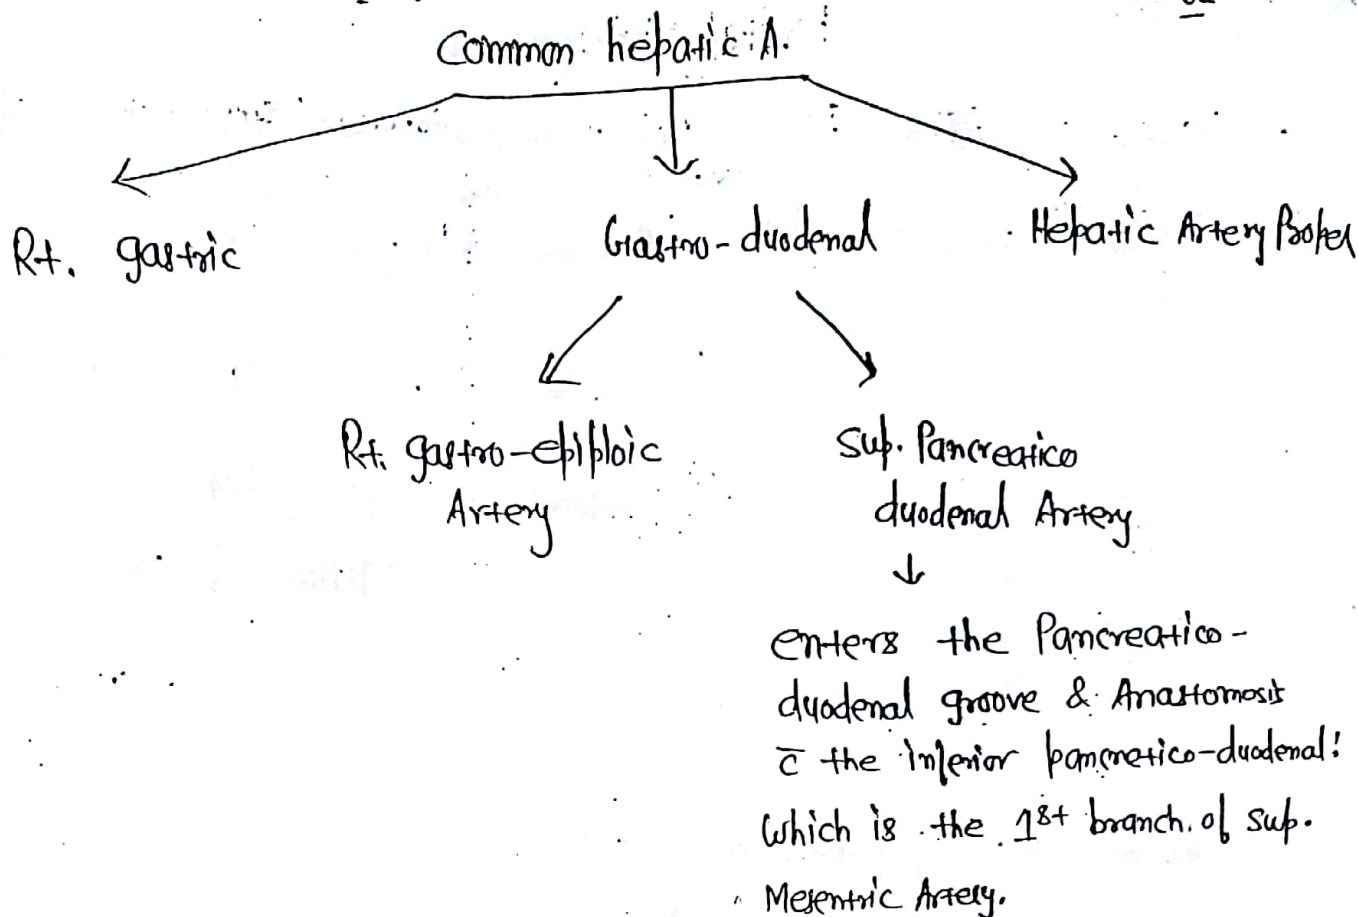 Common hepatic A.
Rt. gastric
Gastro-duodenal
Hepatic Artery Proper
Rt. gastro-epiploic
Artery
Sup. Pancreatico
duodenal Artery
enters the Pancreatico-
duodenal groove & Anastomosis
c̄ the inferior pancretico-duodenal!
which is the 1st branch of sup.
Mesentric Artery.